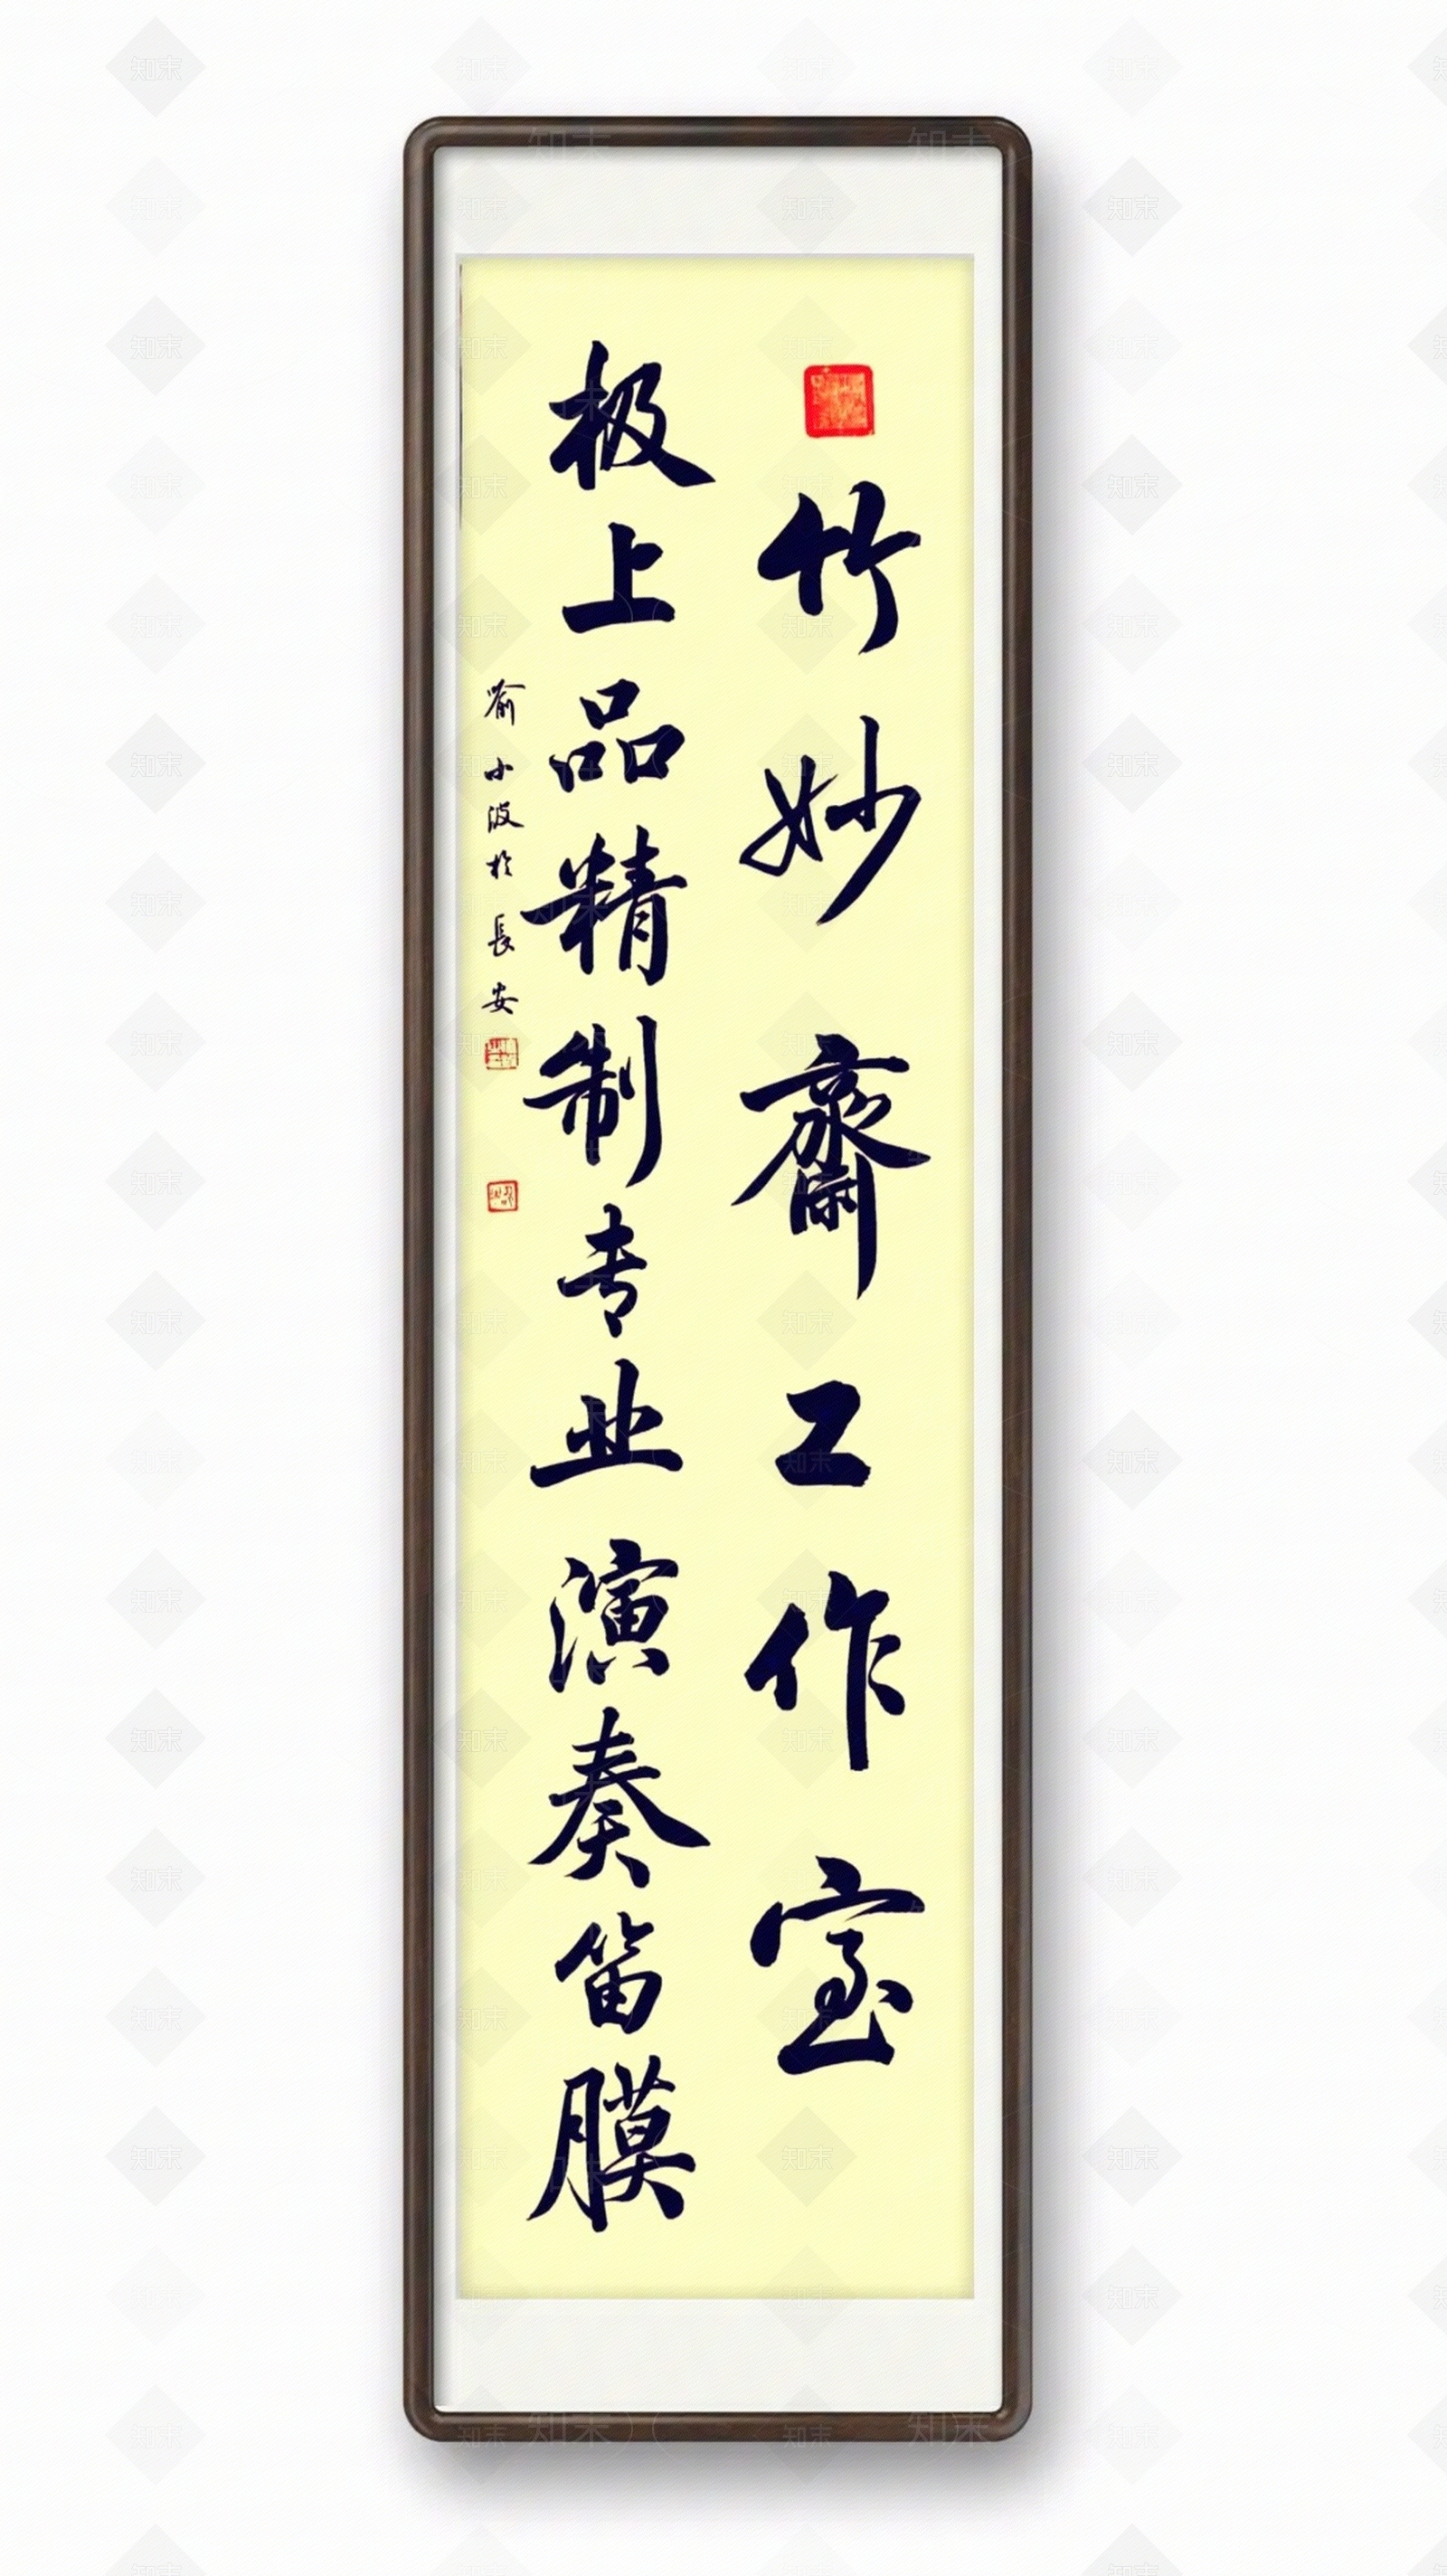 竹妙齋工作室
极上品精制专业演奏笛膜
俞小波於長安
知末